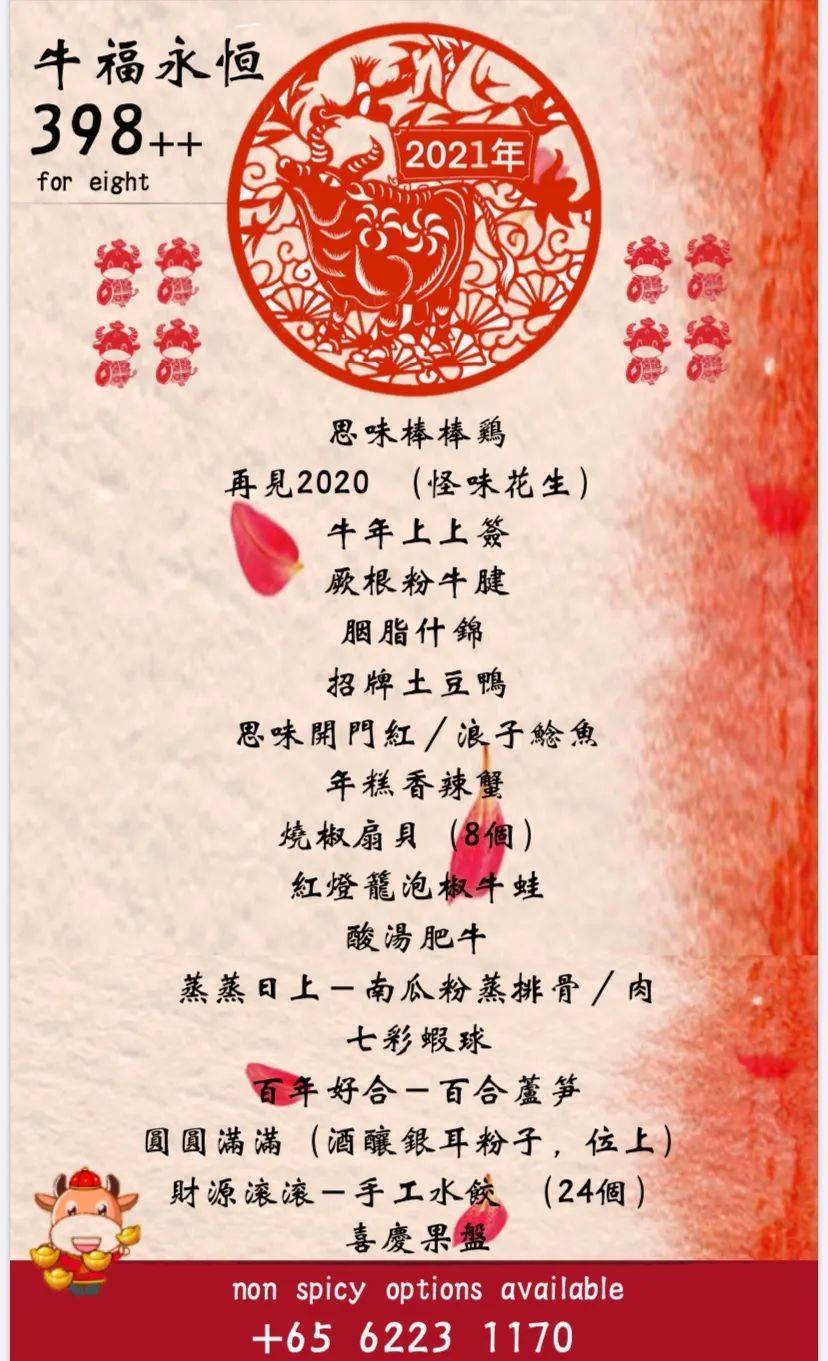 牛福永恒
398++
for eight
2021年
思味棒棒鷄
再見2020 （怪味花生）
牛年上上簽
厥根粉牛腱
胭脂什錦
招牌土豆鴨
思味開門紅／浪子鯰魚
年糕香辣蟹
燒椒扇貝（8個）
紅燈籠泡椒牛蛙
酸湯肥牛
蒸蒸日上－南瓜粉蒸排骨／肉
七彩蝦球
百年好合－百合蘆笋
圓圓滿滿（酒釀銀耳粉子，位上）
財源滚滚－手工水餃 （24個）
喜慶果盤
non spicy options available
+65 6223 1170